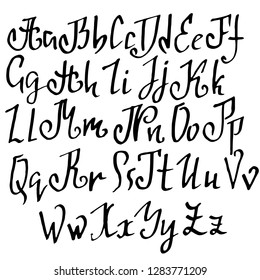 AaBbCcDdEeFf
GgHhIiJjKk
LlMmNnOoPp
QqRrSsTtUuVv
WwXxYyZz
shutterstock.com · 1283771209